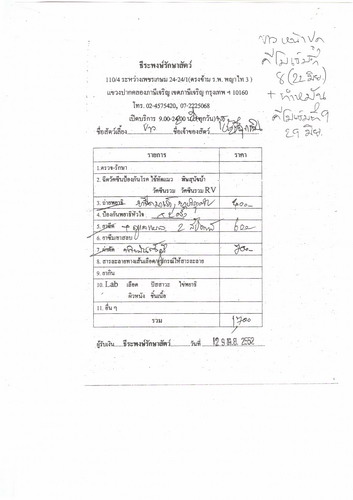 ธีระพงษ์รักษาสัตว์
110/4 ระหว่างเพชรเกษม 24-24/1(ตรงข้าม ร.พ. พญาไท 3 )
แขวงปากคลองภาษีเจริญ เขตภาษีเจริญ กรุงเทพ ฯ 10160
โทร. 02-4575420, 07-2225068
เปิดบริการ 9.00-24.00 น.(ทุกวัน)
ชื่อสัตว์เลี้ยง ขาว ชื่อเจ้าของสัตว์
ขาว หน้าปด
คีโมเข็มที่
8 (22 มิย.)
+ ทำหมัน
คีโมเข็มที่ 9
29 มิย.
รายการ ราคา
1.ตรวจ-รักษา
2. ฉีดวัคซีนป้องกันโรค ไข้หัดแมว พิษสุนัขบ้า
วัคซีนรวม วัคซีนรวม RV
3. ถ่ายพยาธิ
4. ป้องกันพยาธิหัวใจ
5. ยาฉีด 2 สัปดาห์ 600
6. ยาซึม/ยาสลบ
7. ผ่าตัด 700
8. สารละลายทางเส้นเลือด/อุปกรณ์ให้สารละลาย
9. ยากิน
10. Lab เลือด ปัสสาวะ ไข่พยาธิ
ผิวหนัง ชิ้นเนื้อ
11. อื่น ๆ
รวม
ผู้รับเงิน ธีระพงษ์รักษาสัตว์ วันที่ 2552